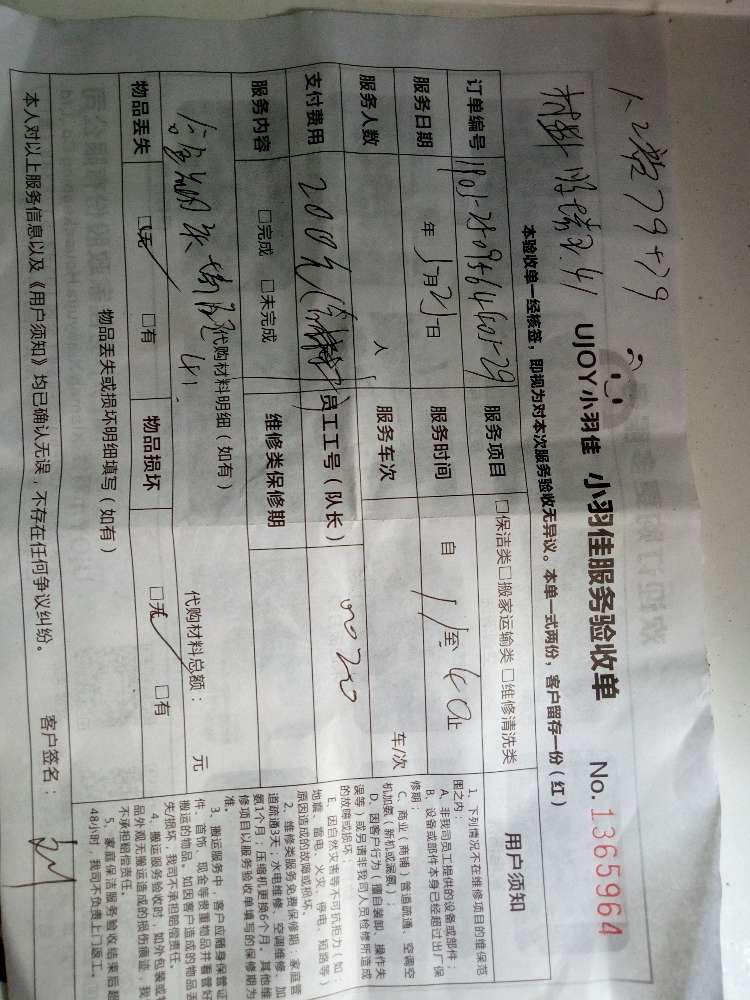 人工费79+79
UJOY小羽佳 小羽佳服务验收单 No.1365964
本验收单一经核签，即视为对本次服务验收无异议。本单一式两份，客户留存一份（红）
订单编号 服务项目 □保洁类□搬家运输类□维修清洗类
服务日期 年 5月25日 服务时间 自 11至 止
服务人数 人 服务车次 车/次
支付费用 200元 员工工号（队长）
服务内容 □完成 □未完成 维修类保修期
代购材料明细（如有） 代购材料总额： 元
物品丢失 □无 □有 物品损坏 □无 □有
物品丢失或损坏明细填写（如有）
本人对以上服务信息以及《用户须知》均已确认无误，不存在任何争议纠纷。 客户签名：
用户须知
1、下列情况不在维修项目的维保范
围之内：
A、非我司员工提供的设备或部件；
B、设备或部件本身已经超过出厂保
修期；
C、商业（商铺）管道疏通、空调空
机加氨（新机或漏氨）；
D、因客户行为（擅自装卸、操作失
误等）或另请非我司人员检修所造成
的故障或损坏；
E、因自然灾害等不可抗拒力（如：
地震、雷电、火灾、停电、短路等）
原因造成的故障或损坏。
2、维修类服务免费保修期：家庭管
道疏通3天；水电维修、空调维修、加
氨1个月；压缩机更换6个月。其他维
修项目以服务验收单填写的保修期为
准。
3、搬运服务中，客户应随身保管证
件、首饰、现金等贵重物品并看管好
搬运的物品，如因客户造成的物品丢
失/损坏，我司不承担赔偿责任。
4、搬运服务验收时，如外包装或
品外观无搬运造成的损伤痕迹，我
不承担赔偿责任。
5、家庭保洁服务验收结束后超
48小时，我司不负责上门返工。